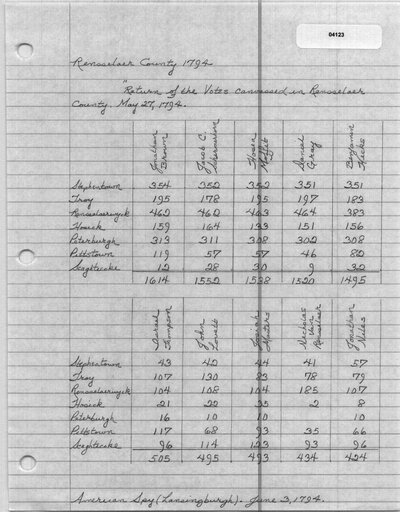 04123
Rensselaer County 1794
"Return of the Votes canvassed in Rensselaer
County. May 27, 1794.
Jonathan Brown Jacob C. Shermerhorn Hosea Moffit Daniel Gray Benjamin Hicks
Stephentown 354 352 352 351 351
Troy 195 178 195 197 183
Rensselaerwyck 462 462 463 464 383
Hosick 159 164 133 151 156
Peterburgh 313 311 308 302 308
Pittstown 119 57 57 46 82
Scagtecake 12 28 30 9 32
1614 1552 1538 1520 1495
Israel Thompson John Lovett Josiah Masters Nicholas Van Rensselaer Jonathan Niles
Stephentown 43 42 44 41 57
Troy 107 130 83 78 79
Rensselaerwyck 104 108 104 185 107
Hosick 21 22 35 2 8
Peterburgh 16 10 10 10
Pittstown 117 68 93 35 66
Scaghtecake 96 114 123 93 96
505 495 493 434 424
American Spy (Lansingburgh). June 3, 1794.